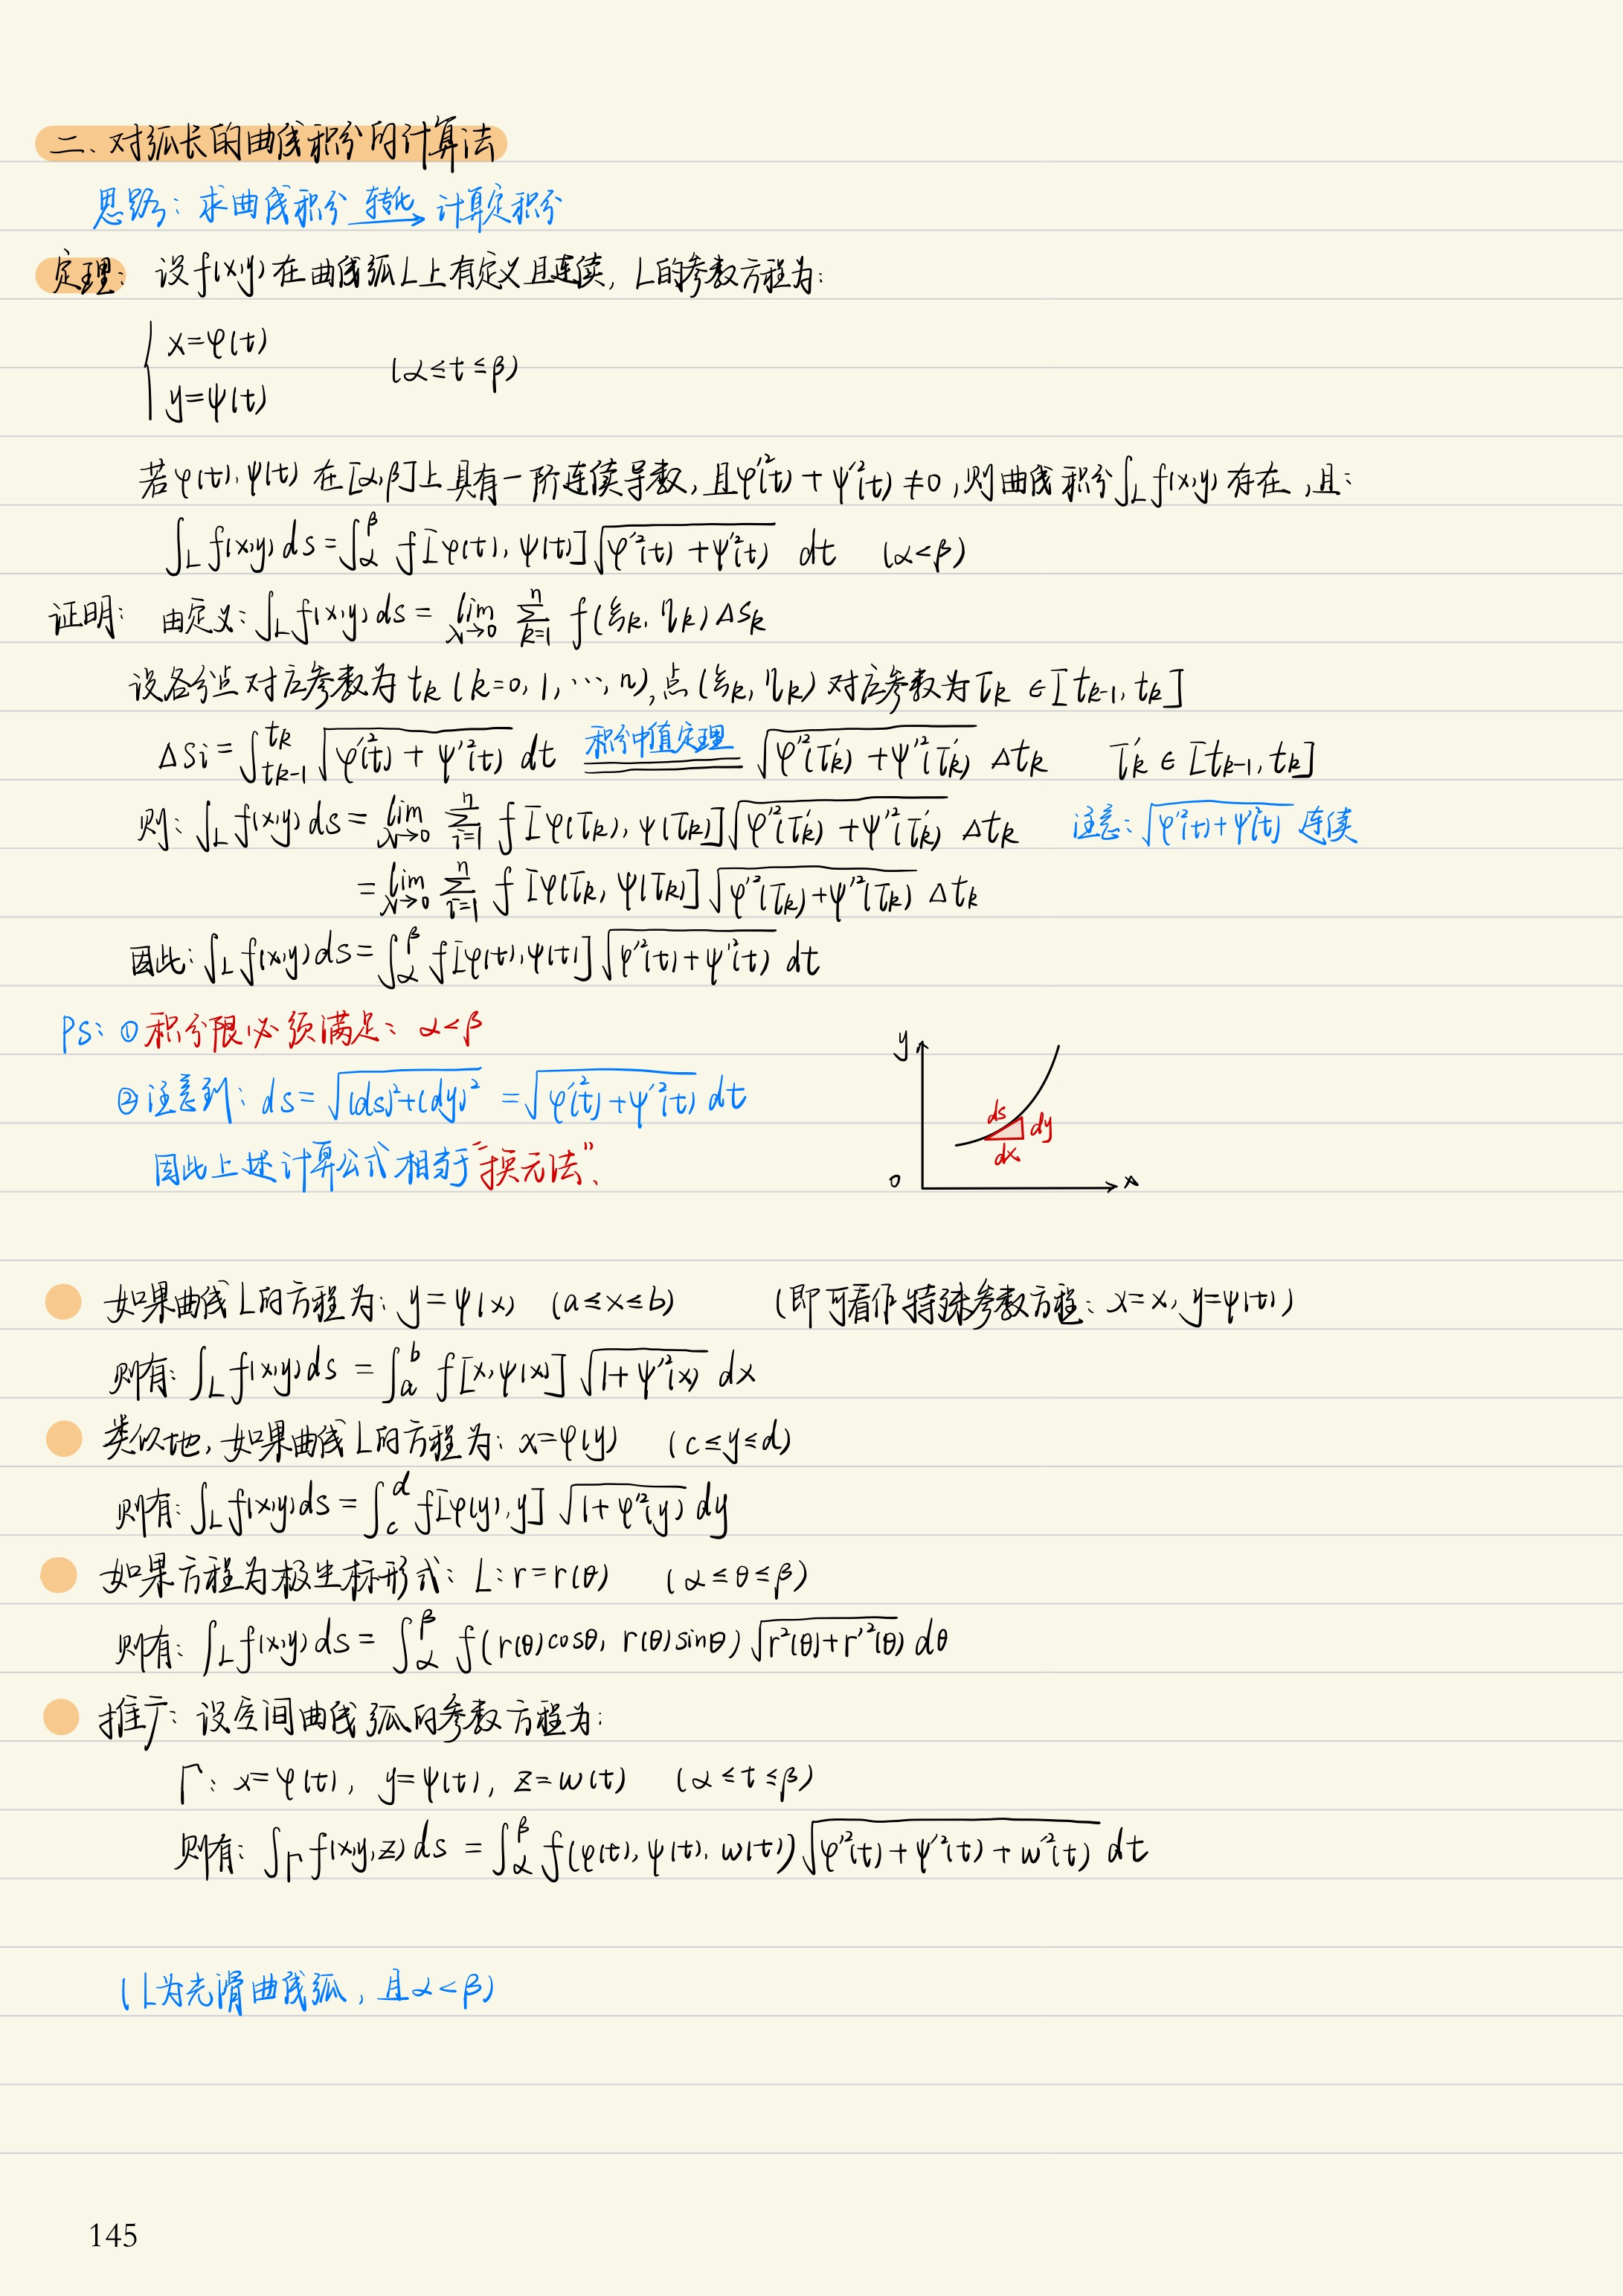 二、对弧长的曲线积分的计算法
思路：求曲线积分 转化→ 计算定积分
定理：设 f(x,y) 在曲线弧 L 上有定义且连续，L的参数方程为：
{ x=φ(t)
y=ψ(t) (α≤t≤β)
若φ(t),ψ(t) 在[α,β]上具有一阶连续导数，且φ'²(t)+ψ'²(t)≠0，则曲线积分∫_L f(x,y) 存在，且：
∫_L f(x,y) ds = ∫_α^β f[φ(t), ψ(t)]√(φ'²(t)+ψ'²(t)) dt (α<β)
证明：由定义：∫_L f(x,y) ds = lim_{λ→0} ∑_{k=1}^n f(ξk, ηk)Δsk
设各分点对应参数为 tk (k=0, 1, ⋯, n), 点(ξk, ηk) 对应参数为τk ∈[tk-1, tk]
Δsi = ∫_{tk-1}^{tk} √(φ'²(t)+ψ'²(t)) dt 积分中值定理 √(φ'²(τ'k)+ψ'²(τ'k)) Δtk τ'k ∈ [tk-1, tk]
则：∫_L f(x,y) ds = lim_{λ→0} ∑_{i=1}^n f[φ(τk), ψ(τk)]√(φ'²(τ'k)+ψ'²(τ'k)) Δtk 注意：√(φ'²(t)+ψ'²(t)) 连续
= lim_{λ→0} ∑_{i=1}^n f[φ(τk, ψ(τk)]√(φ'²(τk)+ψ'²(τk)) Δtk
因此：∫_L f(x,y) ds = ∫_α^β f[φ(t),ψ(t)]√(φ'²(t)+ψ'²(t)) dt
PS：① 积分限必须满足：α<β
② 注意到：ds = √((ds)²+(dy)²) = √(φ'²(t)+ψ'²(t)) dt
因此上述计算公式相当于“换元法”、
y
ds
dy
dx
0
x
如果曲线L的方程为：y=ψ(x) (a≤x≤b) (即可看作特殊参数方程：x=x, y=ψ(t))
则有：∫_L f(x,y) ds = ∫_a^b f[x,ψ(x)]√(1+ψ'²(x)) dx
类似地，如果曲线L的方程为：x=φ(y) (c≤y≤d)
则有：∫_L f(x,y) ds = ∫_c^d f[φ(y),y]√(1+φ'²(y)) dy
如果方程为极坐标形式：L：r=r(θ) (α≤θ≤β)
则有：∫_L f(x,y) ds = ∫_α^β f(r(θ)cosθ, r(θ)sinθ)√(r²(θ)+r'²(θ)) dθ
推广：设空间曲线弧的参数方程为：
Γ：x=φ(t), y=ψ(t), z=w(t) (α≤t≤β)
则有：∫_Γ f(x,y,z) ds = ∫_α^β f(φ(t),ψ(t),w(t))√(φ'²(t)+ψ'²(t)+w'²(t)) dt
(L为光滑曲线弧，且α<β)
145